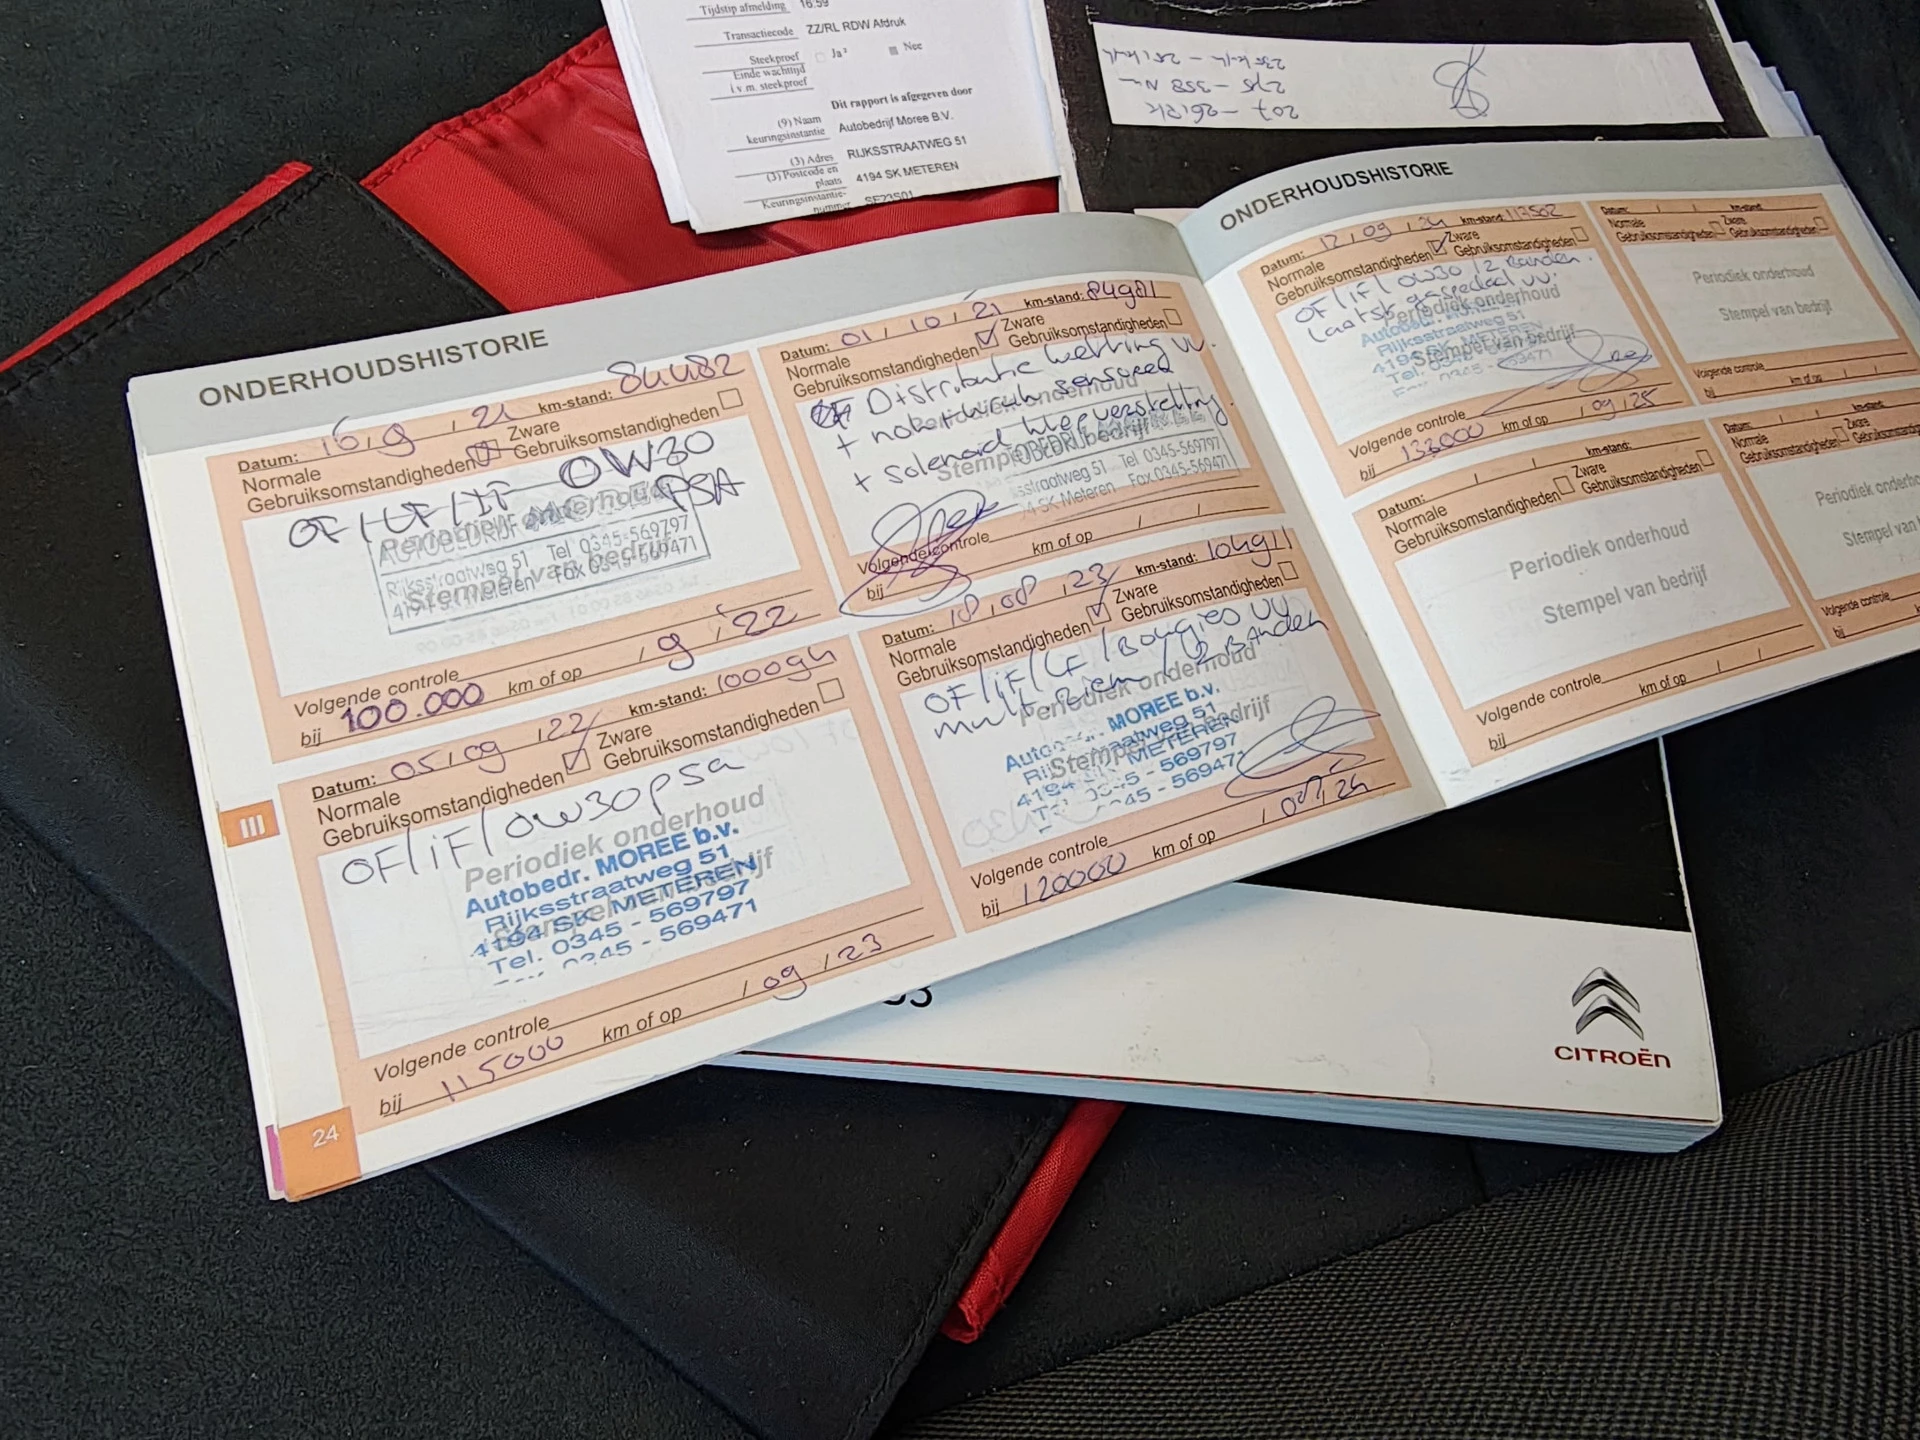 Tijdstip afmelding 16:59
Transactiecode ZZ/RL RDW Afdruk
Steekproef Ja² Nee
Einde wachttijd
i.v.m. steekproef
Dit rapport is afgegeven door
(9) Naam
keuringsinstantie Autobedrijf Moree B.V.
(3) Adres RIJKSSTRAATWEG 51
(3) Postcode en
plaats 4194 SK METEREN
Keuringsinstantie-
nummer
207 - 261PK
275 - 358 Nm
ONDERHOUDSHISTORIE
Datum: 16, 9, 21 km-stand: 84482
Normale
Gebruiksomstandigheden
Zware
Gebruiksomstandigheden
OF/LF/IF 0W30
PSA
Periodiek onderhoud
Stempel van bedrijf
AUTOBEDRIJF
Rijksstraatweg 51 Tel 0345-569797
Meteren Fax 0345-569471
Volgende controle
bij 100.000 km of op , 9, '22
Datum: 01, 10, 21 km-stand: 84981
Normale
Gebruiksomstandigheden
Zware
Gebruiksomstandigheden
Distributie ketting vv.
+ nokkenas sensoren
+ solenoid klepverstelling.
Periodiek onderhoud
Stempel van bedrijf
sstraatweg 51 Tel 0345-569797
94 SK Meteren Fax 0345-569471
Volgende controle
bij km of op
Datum: 05, 09, 22 km-stand: 100094
Normale
Gebruiksomstandigheden
Zware
Gebruiksomstandigheden
OF/iF/0w30psa
Periodiek onderhoud
Stempel van bedrijf
Autobedr. MOREE b.v.
Rijksstraatweg 51
4194 SK METEREN
Tel. 0345 - 569797
0345 - 569471
Volgende controle
bij 115000 km of op , 09, 23
Datum: 18, 08, 23 km-stand: 104911
Normale
Gebruiksomstandigheden
Zware
Gebruiksomstandigheden
OF/iF/LF/Bougies vv
multi Riem/2 Banden
Periodiek onderhoud
Stempel van bedrijf
MOREE b.v.
METEREN
0345 - 569797
0345 - 569471
Volgende controle
bij 120000 km of op
III
24
ONDERHOUDSHISTORIE
Datum: 12, 09, 24 km-stand: 117562
Normale
Gebruiksomstandigheden
Zware
Gebruiksomstandigheden
OF/iF/0W30/2 Banden.
gaspedaal vv.
Periodiek onderhoud
Stempel van bedrijf
Rijksstraatweg 51
Volgende controle
bij 132000 km of op , 09, 25
Datum: km-stand:
Normale
Gebruiksomstandigheden
Zware
Gebruiksomstandigheden
Periodiek onderhoud
Stempel van bedrijf
Volgende controle
bij km of op
Datum: km-stand:
Normale
Gebruiksomstandigheden
Zware
Gebruiksomstandigheden
Periodiek onderhoud
Stempel van bedrijf
Volgende controle
bij km of op
Datum:
Normale
Gebruiksomstandigheden
Zware
Periodiek
Stempel van
Volgende controle
bij
CITROËN